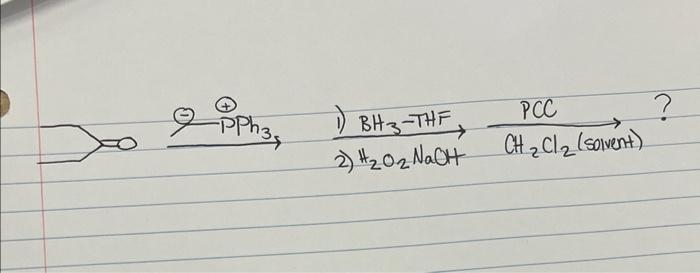 ⊖ ⊕
PPh3,
1) BH3-THF
2) H2O2 NaOH
PCC
CH2Cl2 (solvent)
?
O